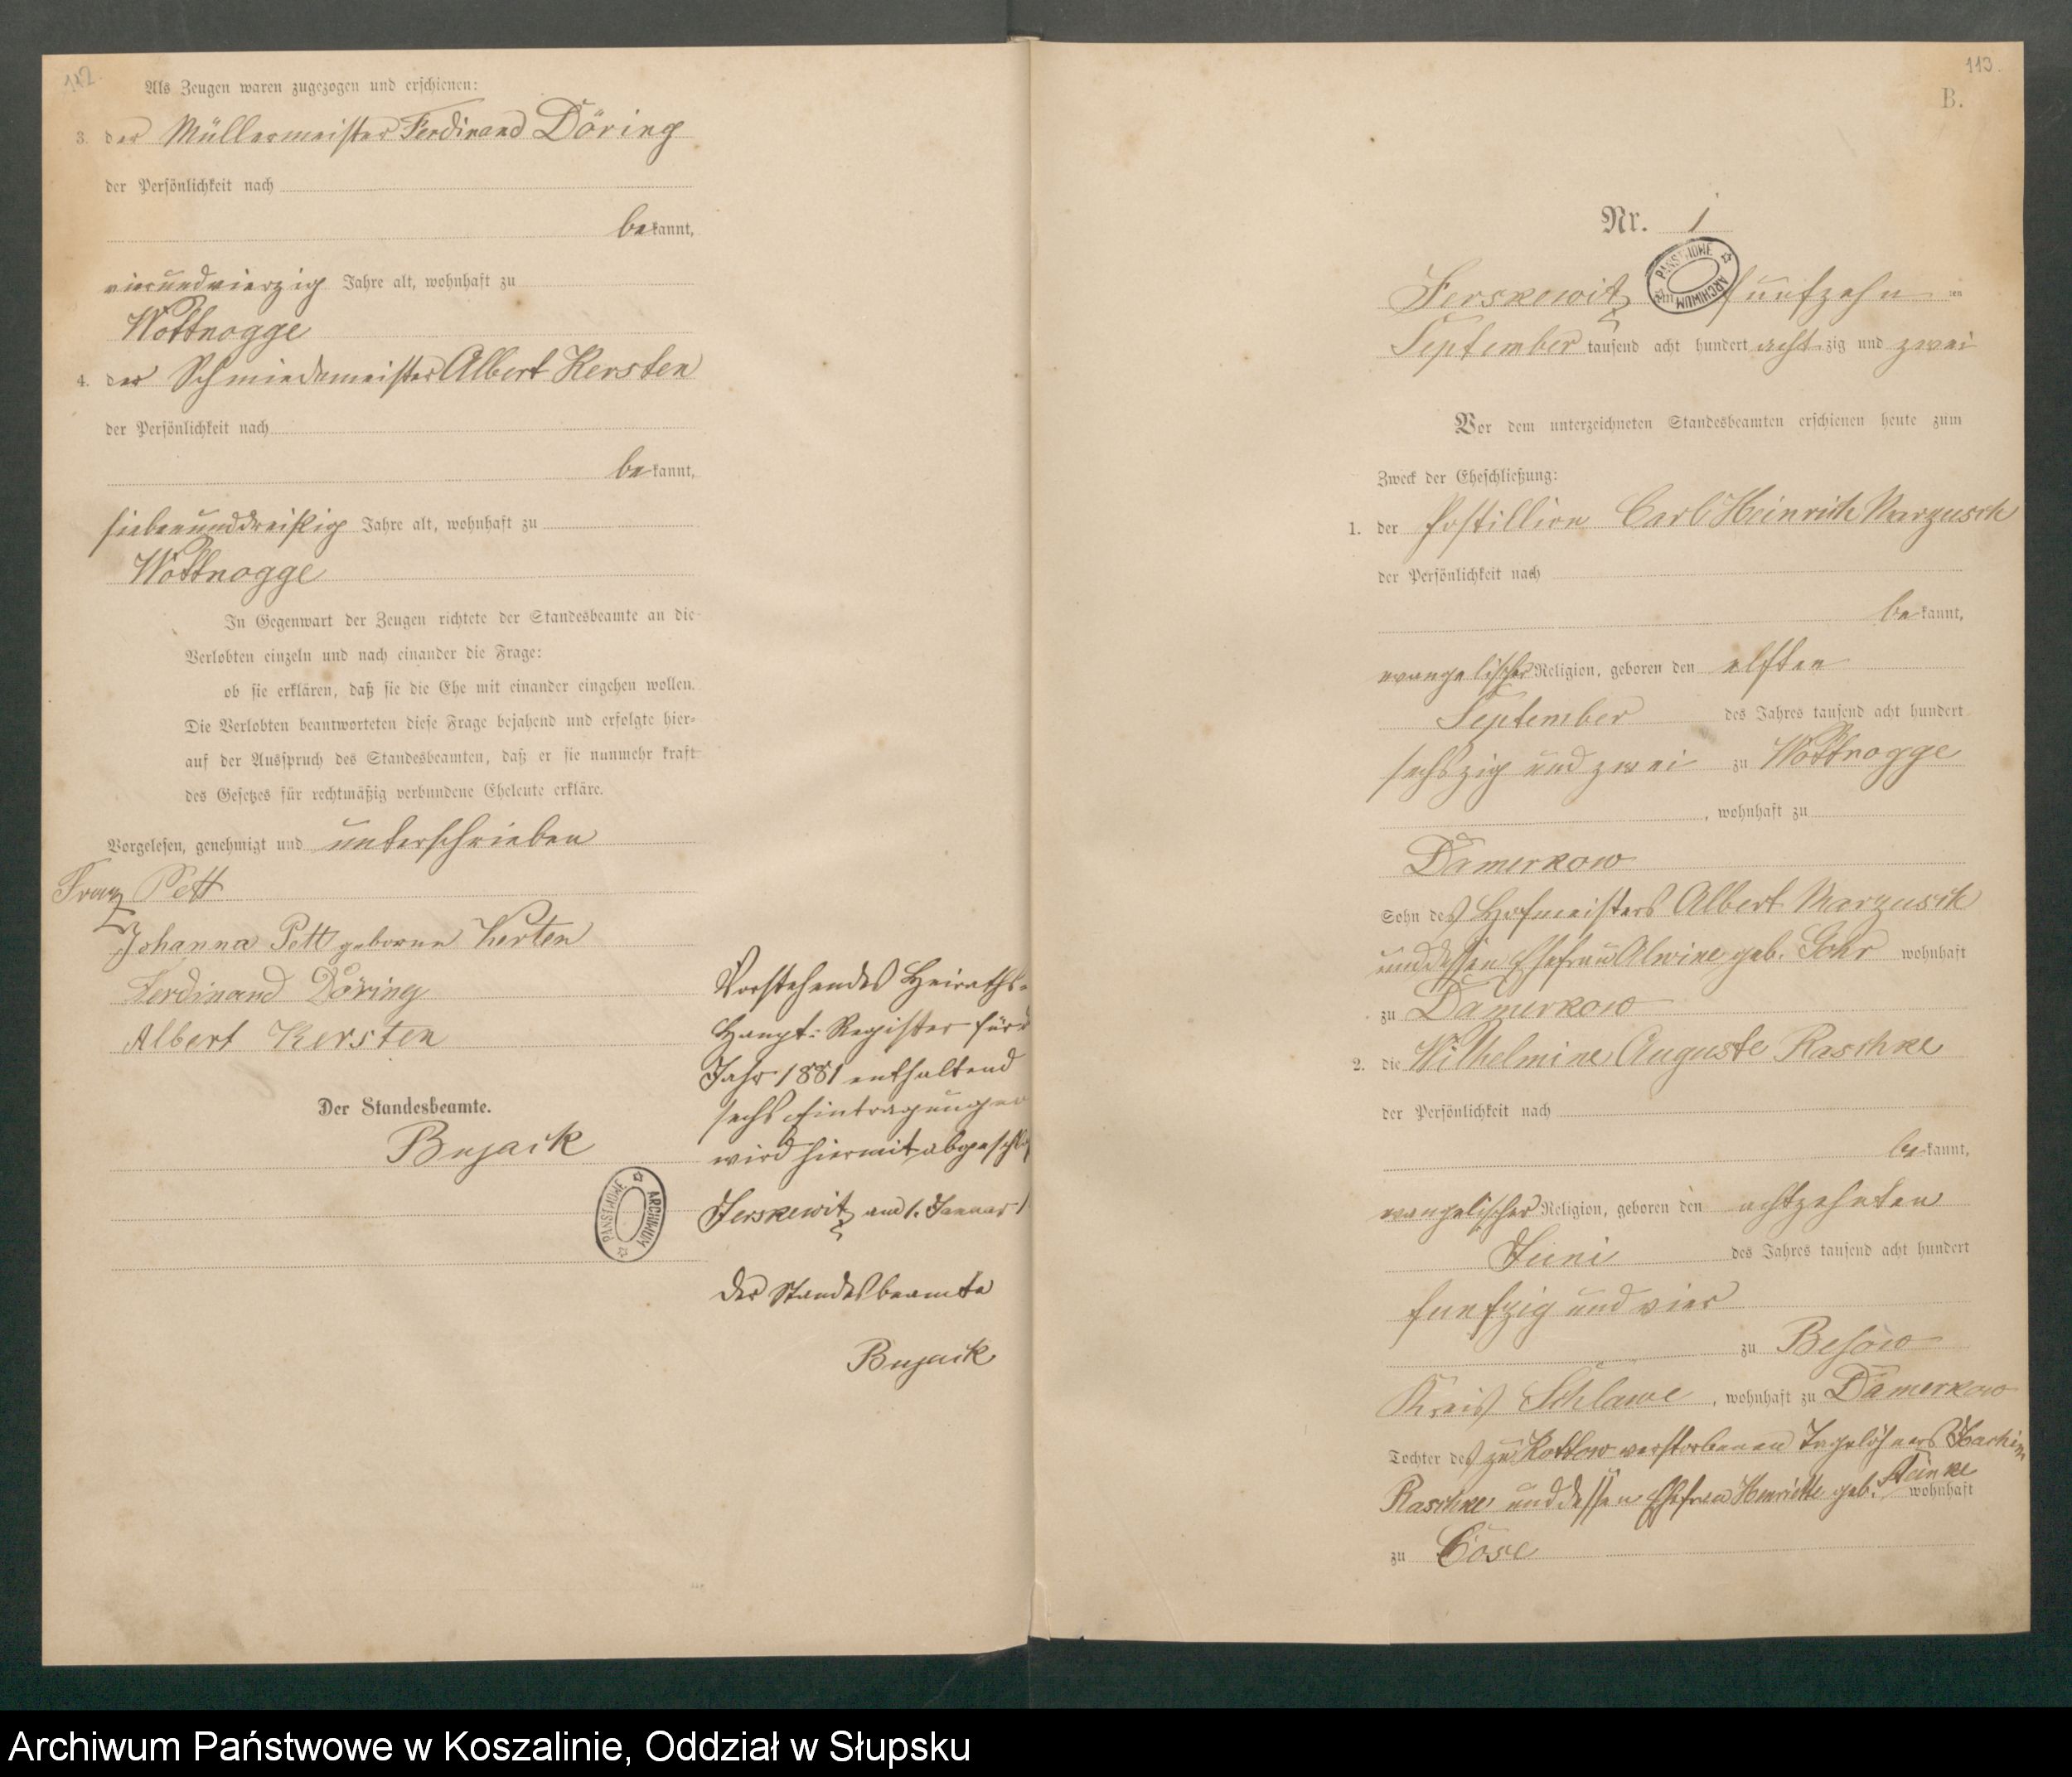 112.
Als Zeugen waren zugezogen und erschienen:
3. der Müllermeister Ferdinand Döring
der Persönlichkeit nach
bekannt,
vierundvierzig Jahre alt, wohnhaft zu
Wottnogge
4. der Schmiedemeister Albert Kersten
der Persönlichkeit nach
bekannt,
siebenunddreißig Jahre alt, wohnhaft zu
Wottnogge
In Gegenwart der Zeugen richtete der Standesbeamte an die
Verlobten einzeln und nach einander die Frage:
ob sie erklären, daß sie die Ehe mit einander eingehen wollen.
Die Verlobten beantworteten diese Frage bejahend und erfolgte hier-
auf der Ausspruch des Standesbeamten, daß er sie nunmehr kraft
des Gesetzes für rechtmäßig verbundene Eheleute erkläre.
Vorgelesen, genehmigt und unterschrieben
Franz Pett
Johanna Pett geborne Kerten
Ferdinand Döring
Albert Kersten
Der Standesbeamte.
Bujack
PAŃSTWOWE ARCHIWUM
Vorstehendes Heiraths-
Haupt-Register fürs
Jahr 1881 enthaltend
sechs Eintragungen
wird hiermit abgeschl
Jerskewitz am 1. Januar 1
Der Standesbeamte
Bujack
113.
B.
Nr. 1
PAŃSTWOWE ARCHIWUM
Jerskewitz am fünfzehn ten
September tausend acht hundert achtzig und zwei
Vor dem unterzeichneten Standesbeamten erschienen heute zum
Zweck der Eheschließung:
1. der Postillion Carl Heinrich Marzusch
der Persönlichkeit nach
bekannt,
evangelischer Religion, geboren den elften
September des Jahres tausend acht hundert
sechszig und zwei zu Wottnogge
, wohnhaft zu
Damerkow
Sohn des Hofmeisters Albert Marzusch
und dessen Ehefrau Alwine geb. Gohr wohnhaft
zu Damerkow
2. die Wilhelmine Auguste Raschke
der Persönlichkeit nach
bekannt,
evangelischer Religion, geboren den achtzehnten
Juni des Jahres tausend acht hundert
funfzig und vier
zu Besow
Kreis Schlawe, wohnhaft zu Damerkow
Tochter des zu Kottow verstorbenen Tagelöhners Joachim
Raschke und dessen Ehefrau Henriette geb. Steinke wohnhaft
zu Cose
Archiwum Państwowe w Koszalinie, Oddział w Słupsku